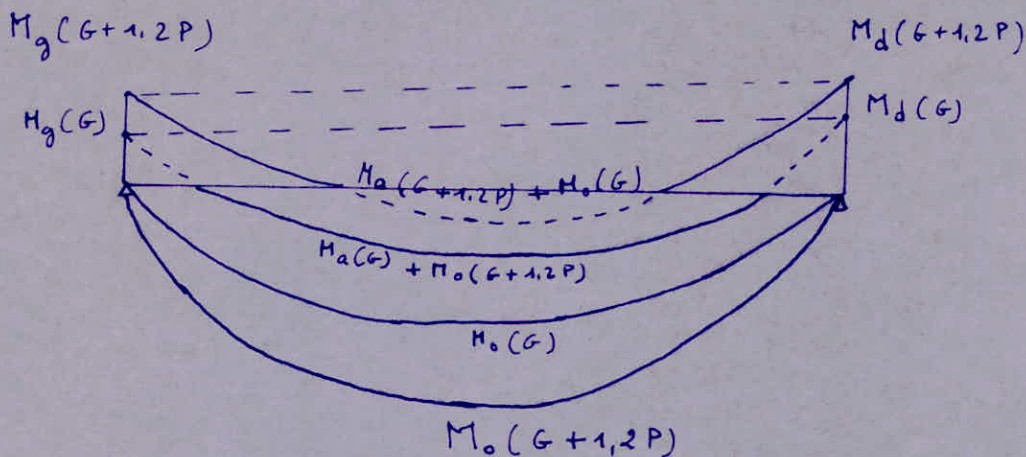 Mg (G+1,2P)
Md (G+1,2P)
Mg (G)
Md (G)
Ma (G+1,2P) + Mo (G)
Ma (G) + Mo (G+1,2P)
Mo (G)
Mo (G+1,2P)